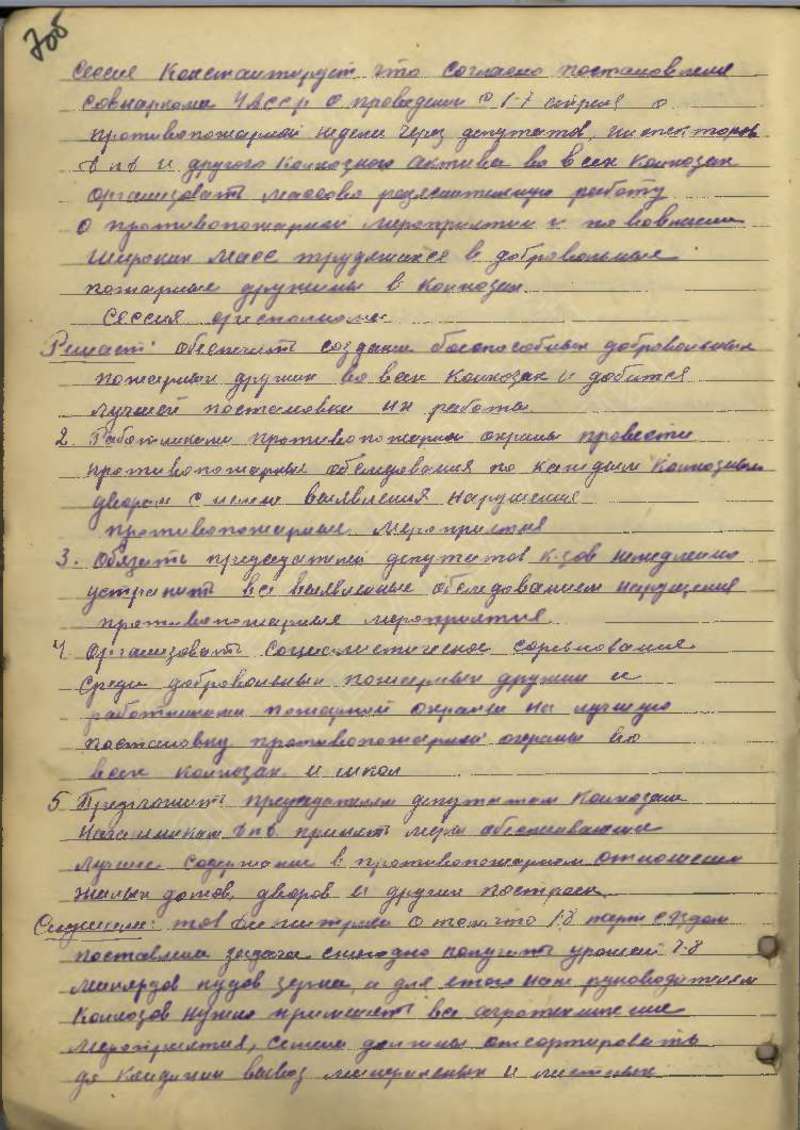 сессия Констатирует что согласно постановления
совнаркома ЧАССР о проведении с 1-7 апреля о
противопожарной недели через депутатов, инспекторов
и другого колхозного актива во всех колхозах
организовать массово разяснительную работу
о противопожарной мероприятии и по вовлечен
широких масс трудящихся в добровольные
пожарные дружины в колхозах.
Сессия
Решает: обеспечить создание боеспособных добровольных
пожарных дружин во всех колхозах и добится
лучшей постановки их работы.
2. Работниками противопожарной охраны провести
противопожарные обследования по каждым колхозным
дворам с целью выявления нарушения
противопожарные мероприятия
3. Обязать председателей депутатов к-зов немедленно
устранить все выявленные обследованием нарушения
противопожарные мероприятия.
4. Организовать социалистическое соревнование
среди добровольных пожарных дружин и
работниками пожарной охраны на лучшую
постановку противопожарной охраны во
всех колхозах и школ
5 Предложить председателям депутатам колхозам
Начальникам принять меры обеспечивающие
лучшее содержание в противопожарном отношении
жилых домов, дворов и других построек.
Слушали: тов о том что 18 парт сездом
поставлена задача ежегодно получить урожай 7-8
милярдов пудов зерна, а для этого нам руководителям
колхозов нужно применить все агротехнические
мероприятия, семена должны отсортировать
до кондиции вывоз минеральных и местных